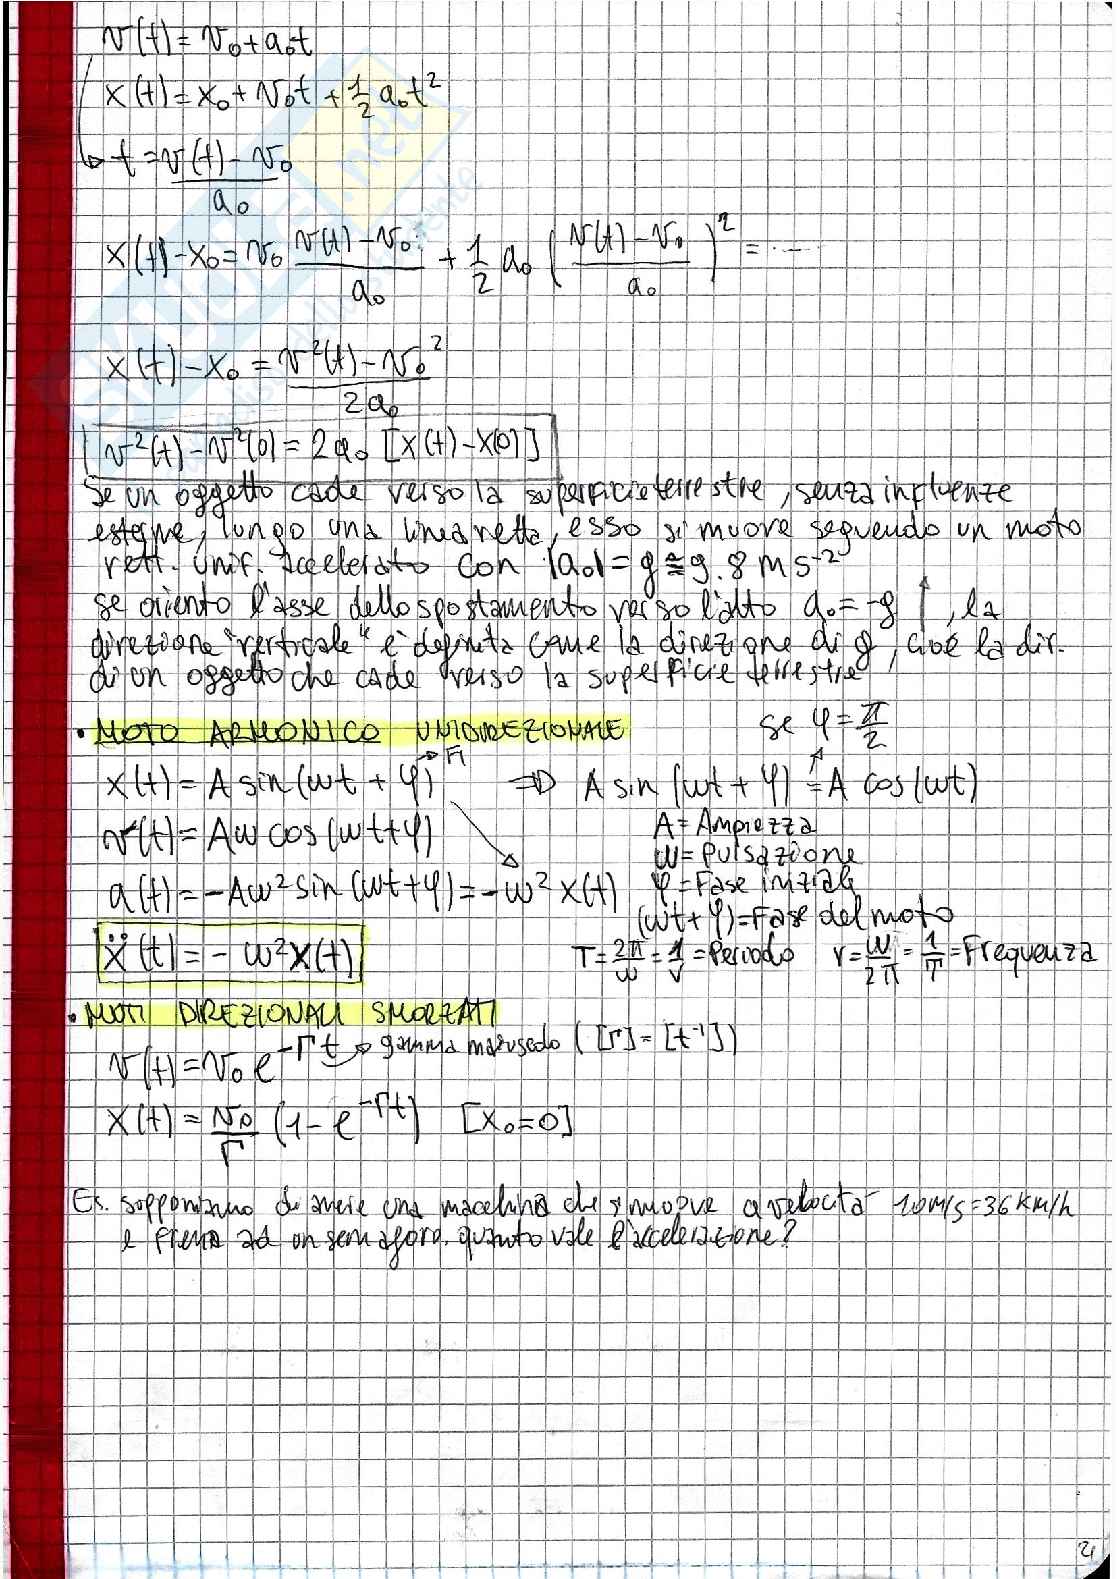 v(t) = v₀ + a₀t
x(t) = x₀ + v₀t + 1/2 a₀t²
↳ t = (v(t) - v₀)/a₀
x(t) - x₀ = v₀ (v(t) - v₀)/a₀ + 1/2 a₀ ((v(t) - v₀)/a₀)² = ----
x(t) - x₀ = (v²(t) - v₀²)/2a₀
v²(t) - v²(0) = 2a₀ [x(t) - x(0)]
Se un oggetto cade verso la superficie terrestre, senza influenze
esterne, lungo una linea retta, esso si muove seguendo un moto
rett. unif. accelerato con |a₀| = g ≅ 9.8 m s⁻²
se oriento l'asse dello spostamento verso l'alto a₀ = -g ↑, la
direzione "verticale" è definita come la direzione di g, cioè la dir.
di un oggetto che cade verso la superficie terrestre
• MOTO ARMONICO UNIDIREZIONALE
se φ = π/2
→ Fi
x(t) = A sin(ωt + φ) ⇒ A sin(ωt + φ) = A cos(ωt)
v(t) = Aω cos(ωt + φ)
A = Ampiezza
ω = Pulsazione
a(t) = -Aω² sin(ωt + φ) = -ω² x(t)
φ = Fase iniziale
(ωt + φ) = Fase del moto
ẍ(t) = - ω² x(t)
T = 2π/ω = 1/ν = Periodo ν = ω/2π = 1/T = Frequenza
• MOTI DIREZIONALI SMORZATI
v(t) = v₀ e^(-Γt) → gamma maiuscolo ([Γ] = [t⁻¹])
x(t) = v₀/Γ (1 - e^(-Γt)) [x₀ = 0]
Es. supponiamo di avere una macchina che si muove a velocità 10 m/s = 36 km/h
e frena ad un semaforo. quanto vale l'accelerazione?
SKUOLA.net